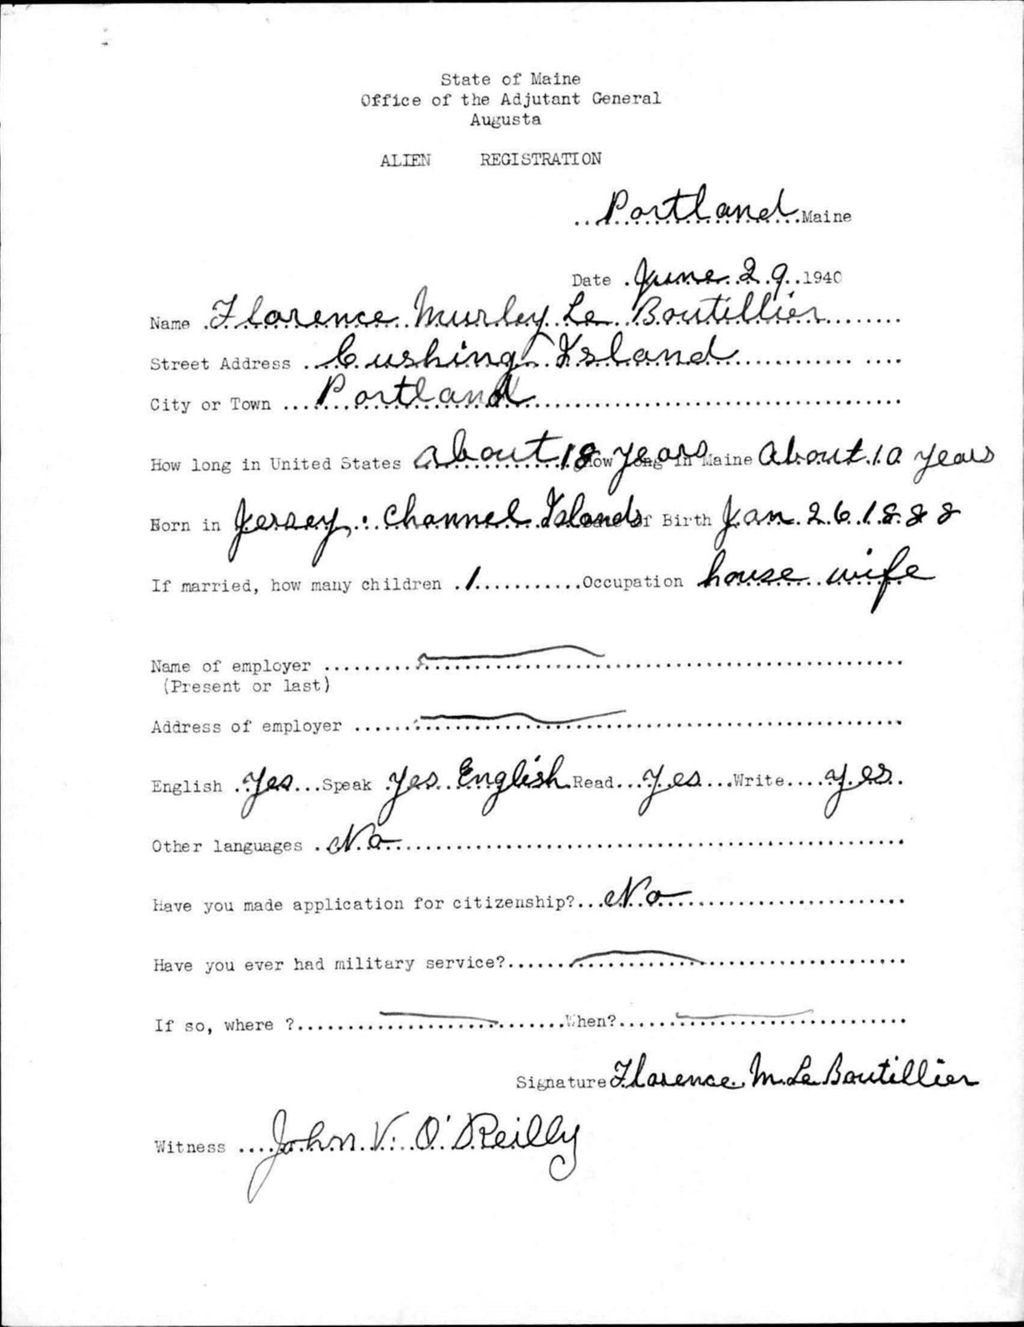 State of Maine
Office of the Adjutant General
Augusta
ALIEN REGISTRATION
Portland Maine
Date June 29, 1940
Name Florence Murley Le Boutillier
Street Address Cushing Island
City or Town Portland
How long in United States About 18 years How long in Maine About 10 years
Born in Jersey, Channel Islands Date of Birth Jan 26 1888
If married, how many children 1 Occupation house wife
Name of employer
(Present or last)
Address of employer
English Yes Speak Yes English Read Yes Write yes
Other languages No
Have you made application for citizenship? No
Have you ever had military service?
If so, where ? When?
Signature Florence M. Le Boutillier
Witness John V. O'Reilly